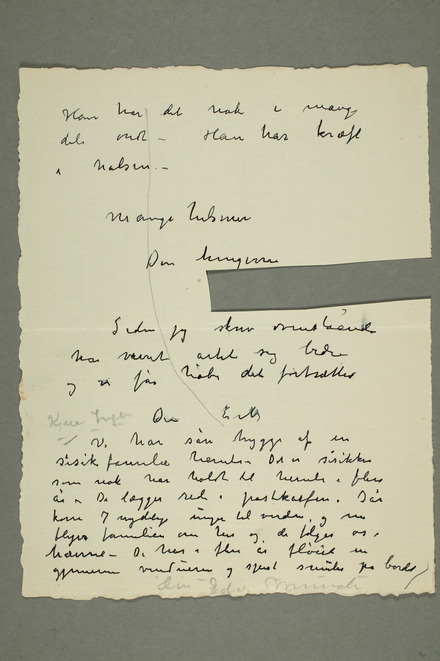 Han har det nok i mange
dele ondt – Han har kræft
i halsen. –
Mange hilsner
Din hengivne
Siden jeg skrev ovenstående
har været artet sig bedre
og vi får håbe det fortsætter
Din
Kjære Inger
Vi har sån hygge af en
sisik familie herude Det er sisikker
som nok har holdt til herude i flere
år – De lægger rede i postkassen. Så
kom 7 nydelige unger til verden, og nu
flyver familien om her og de følger os i
hælene – De har i flere år fløiet ind
gjennem vinduerne og spist smuler på bordet
Din Edv Munch